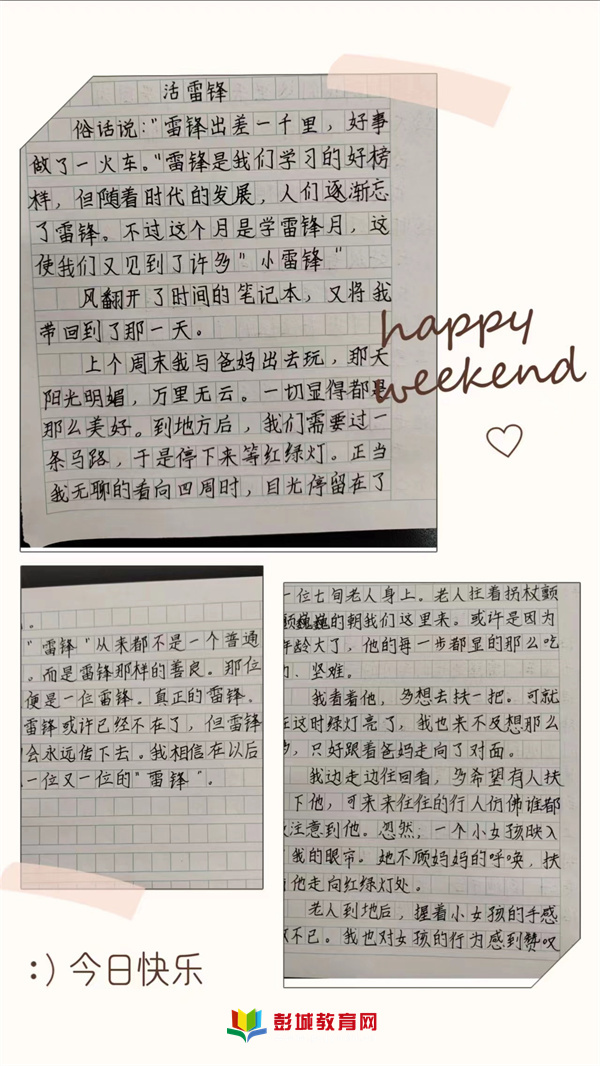 活雷锋
俗话说：“雷锋出差一千里，好事
做了一火车。”雷锋是我们学习的好榜
样，但随着时代的发展，人们逐渐忘
了雷锋。不过这个月是学雷锋月，这
使我们又见到了许多“小雷锋”
风翻开了时间的笔记本，又将我
带回到了那一天。
上个周末我与爸妈出去玩，那天
阳光明媚，万里无云。一切显得都是
那么美好。到地方后，我们需要过一
条马路，于是停下来等红绿灯。正当
我无聊的看向四周时，目光停留在了
happy
weekend
一位七旬老人身上。老人拄着拐杖颤
巍巍的朝我们这里来。或许是因为
年龄大了，他的每一步都显的那么吃
力、坚难。
我看着他，多想去扶一把。可就
在这时绿灯亮了，我也来不及想那么
多，只好跟着爸妈走向了对面。
我边走边往回看，多希望有人扶
下他，可来来往往的行人仿佛谁都
注意到他。忽然，一个小女孩映入
我的眼帘。她不顾妈妈的呼唤，扶
他走向红绿灯处。
老人到地后，握着小女孩的手感
不已。我也对女孩的行为感到赞叹
。
“雷锋”从来都不是一个普通
。而是雷锋那样的善良。那位
便是一位雷锋。真正的雷锋。
雷锋或许已经不在了，但雷锋
会永远传下去。我相信在以后
一位又一位的“雷锋”。
:) 今日快乐
彭城教育网